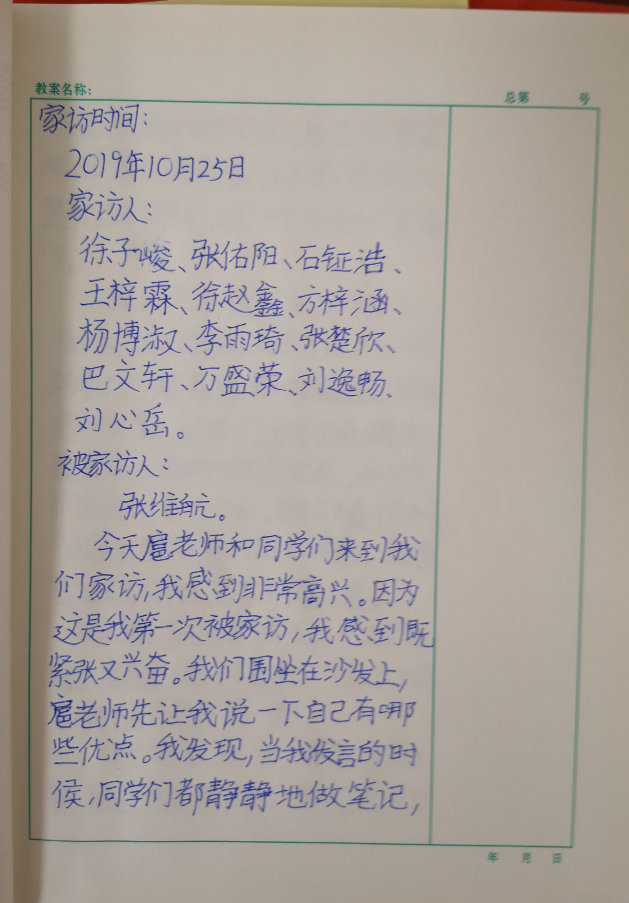 教案名称：
总第 号
家访时间：
2019年10月25日
家访人：
徐子峻、张佑阳、石钲浩、
王梓霖、徐赵鑫、方梓涵、
杨博淑、李雨琦、张楚欣、
巴文轩、万盛荣、刘逸畅、
刘心岳。
被家访人：
张维航。
今天扈老师和同学们来到我
们家访，我感到非常高兴。因为
这是我第一次被家访，我感到既
紧张又兴奋。我们围坐在沙发上，
扈老师先让我说一下自己有哪
些优点。我发现，当我发言的时
侯，同学们都静静地做笔记，
年 月 日